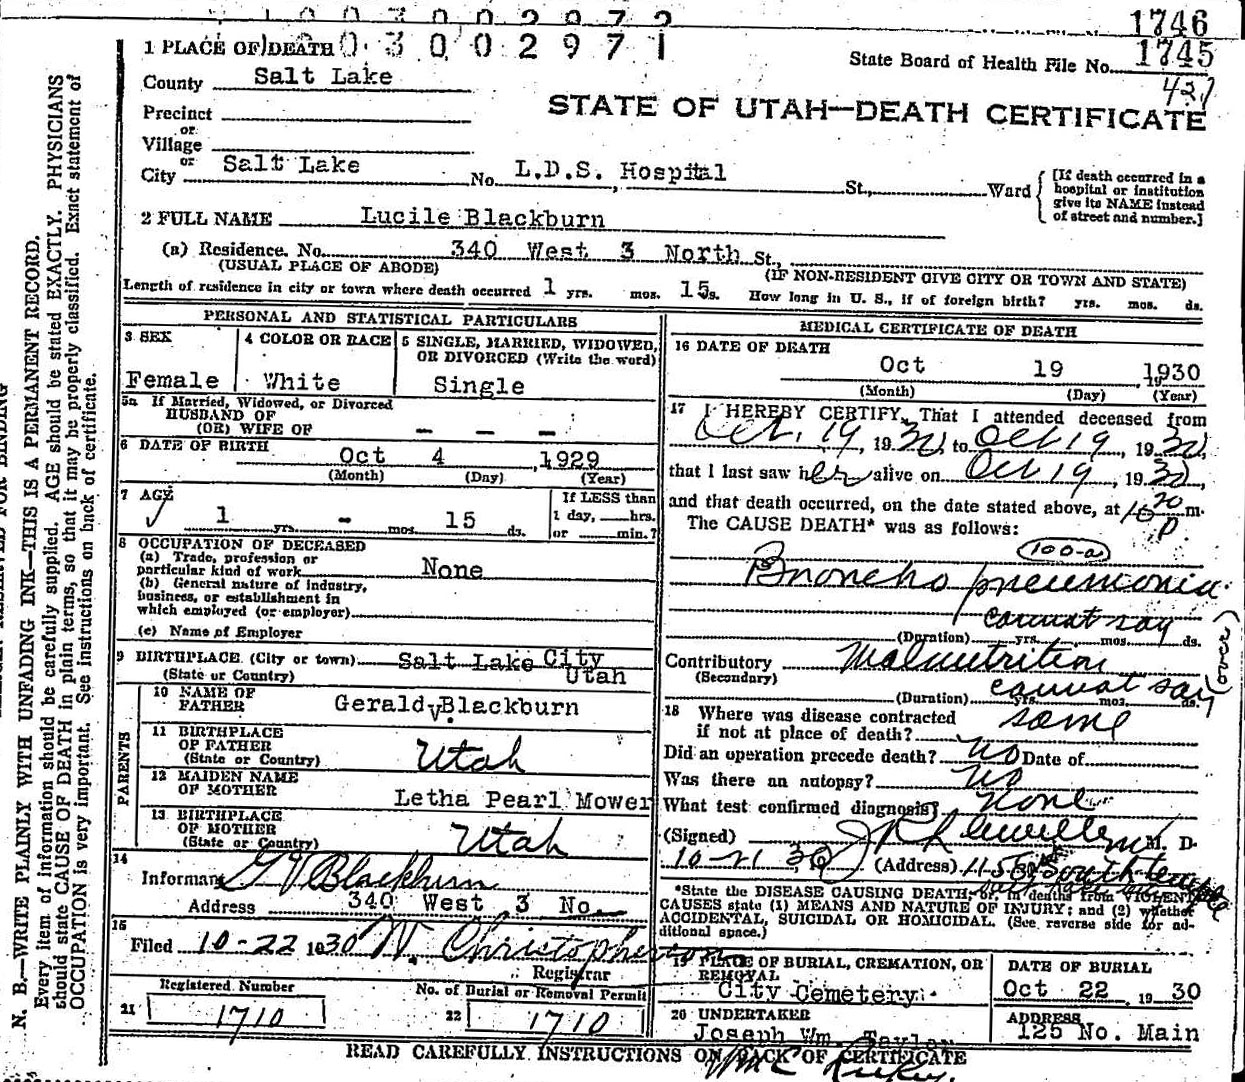 1746
1 PLACE OF DEATH 03002971 1745
State Board of Health File No.
County Salt Lake 437
STATE OF UTAH—DEATH CERTIFICATE
Precinct
or
Village
or
City Salt Lake No. L.D.S. Hospital St., Ward
[If death occurred in a
hospital or institution
give its NAME instead
of street and number.]
2 FULL NAME Lucile Blackburn
(a) Residence. No. 340 West 3 North St.,
(USUAL PLACE OF ABODE) (IF NON-RESIDENT GIVE CITY OR TOWN AND STATE)
Length of residence in city or town where death occurred 1 yrs. mos. 15 ds. How long in U. S., if of foreign birth? yrs. mos. ds.
PERSONAL AND STATISTICAL PARTICULARS
3 SEX 4 COLOR OR RACE 5 SINGLE, MARRIED, WIDOWED,
OR DIVORCED (Write the word)
Female White Single
5a If Married, Widowed, or Divorced
HUSBAND OF
(OR) WIFE OF – – –
6 DATE OF BIRTH Oct 4, 1929
(Month) (Day) (Year)
7 AGE If LESS than
1 yrs. – mos. 15 ds. 1 day, hrs.
or min.?
8 OCCUPATION OF DECEASED
(a) Trade, profession or
particular kind of work None
(b) General nature of industry,
business, or establishment in
which employed (or employer)
(c) Name of Employer
9 BIRTHPLACE (City or town) Salt Lake City
(State or Country) Utah
PARENTS
10 NAME OF
FATHER Gerald V. Blackburn
11 BIRTHPLACE
OF FATHER
(State or Country) Utah
12 MAIDEN NAME
OF MOTHER Letha Pearl Mower
13 BIRTHPLACE
OF MOTHER
(State or Country) Utah
14
Informant G V Blackburn
Address 340 West 3 No.
15
Filed 10-22 1930 W. Christopherson
Registrar
Registered Number No. of Burial or Removal Permit
21 1710 22 1710
MEDICAL CERTIFICATE OF DEATH
16 DATE OF DEATH
Oct 19 1930
(Month) (Day) (Year)
17 I HEREBY CERTIFY, That I attended deceased from
Oct. 19, 1930, to Oct 19, 1930,
that I last saw her alive on Oct 19, 1930,
and that death occurred, on the date stated above, at m.
P
The CAUSE DEATH* was as follows:
100-a
Broncho pneumonia
cannot say
(Duration) yrs. mos. ds.
Contributory Malnutrition
(Secondary)
cannot say
(Duration) yrs. mos. ds.
18 Where was disease contracted
if not at place of death? same
Did an operation precede death? no Date of
Was there an autopsy? no
What test confirmed diagnosis? none
(Signed) J R Llewellyn M. D.
10-21 30 (Address) 1155 E South temple
*State the DISEASE CAUSING DEATH, or, in deaths from VIOLENT
CAUSES state (1) MEANS AND NATURE OF INJURY; and (2) whether
ACCIDENTAL, SUICIDAL OR HOMICIDAL. (See reverse side for ad-
ditional space.)
19 PLACE OF BURIAL, CREMATION, OR
REMOVAL
City Cemetery
DATE OF BURIAL
Oct 22, 1930
20 UNDERTAKER
Joseph Wm. Taylor
ADDRESS
125 No. Main
READ CAREFULLY INSTRUCTIONS ON BACK OF CERTIFICATE
N. B.—WRITE PLAINLY WITH UNFADING INK—THIS IS A PERMANENT RECORD.
Every item of information should be carefully supplied. AGE should be stated EXACTLY. PHYSICIANS
should state CAUSE OF DEATH in plain terms, so that it may be properly classified. Exact statement of
OCCUPATION is very important. See instructions on back of certificate.